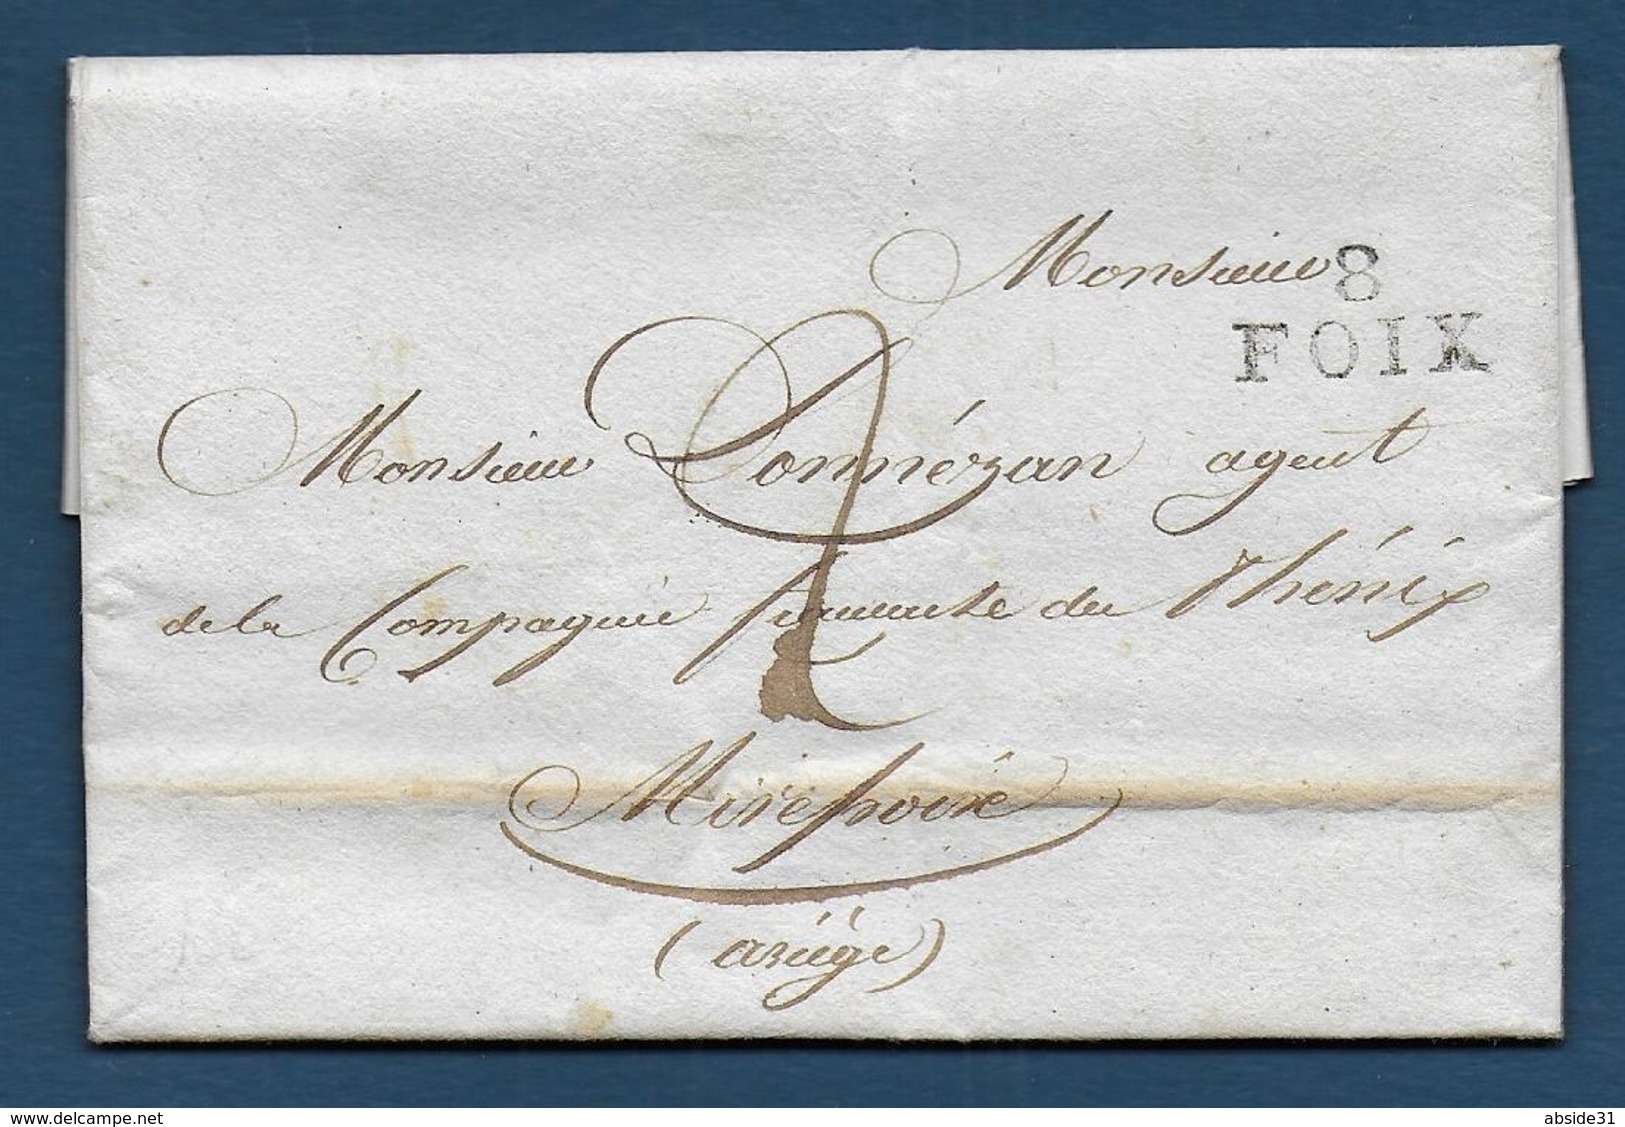 Monsieur
8
FOIX
Monsieur Donnézan agent
de la Compagnie du Phénix
Mirepoix
(ariége)
delcampe.net
abside31